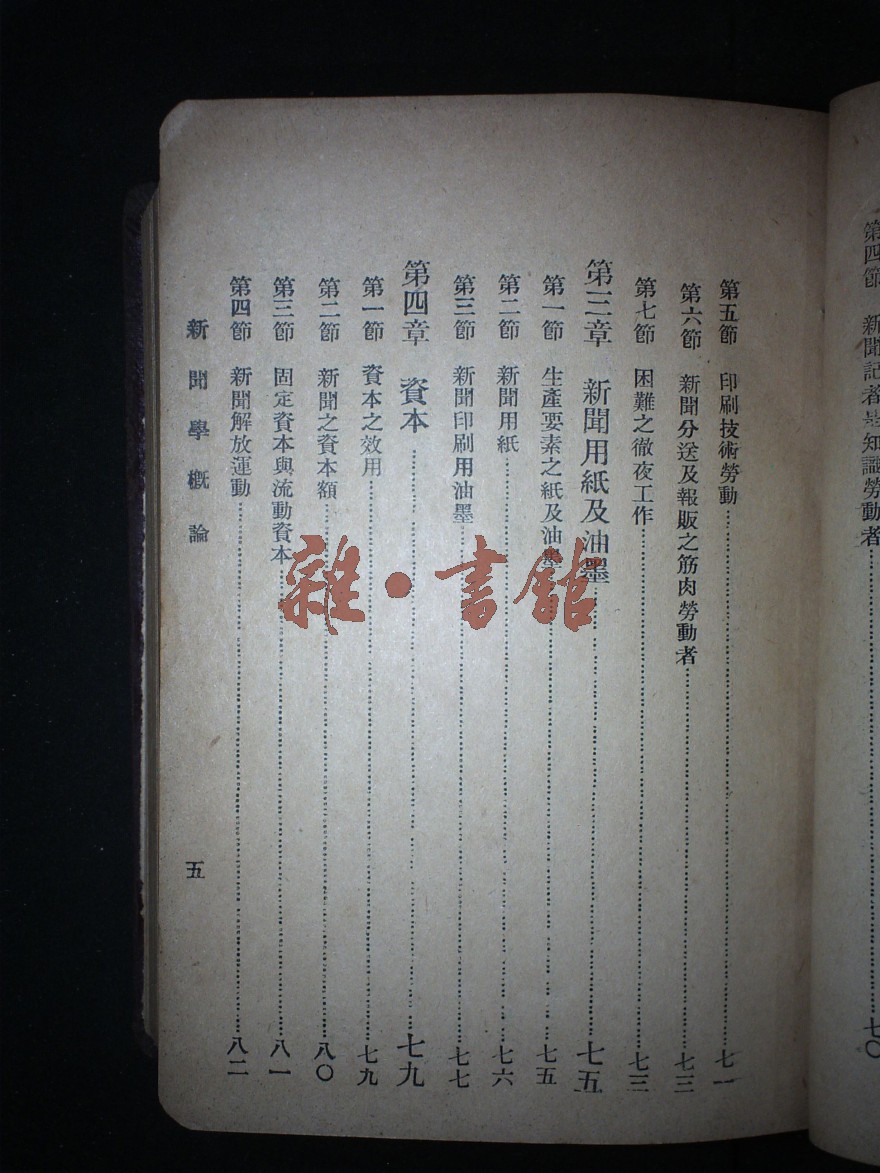 第四節　新聞記者是知識勞動者……七〇
第五節　印刷技術勞動……七一
第六節　新聞分送及報販之筋肉勞動者……七三
第七節　困難之徹夜工作……七三
第三章　新聞用紙及油墨……七五
第一節　生產要素之紙及油墨……七五
第二節　新聞用紙……七六
第三節　新聞印刷用油墨……七七
第四章　資本……七九
第一節　資本之效用……七九
第二節　新聞之資本額……八〇
第三節　固定資本與流動資本……八一
第四節　新聞解放運動……八二
新聞學概論　五
雜·書館